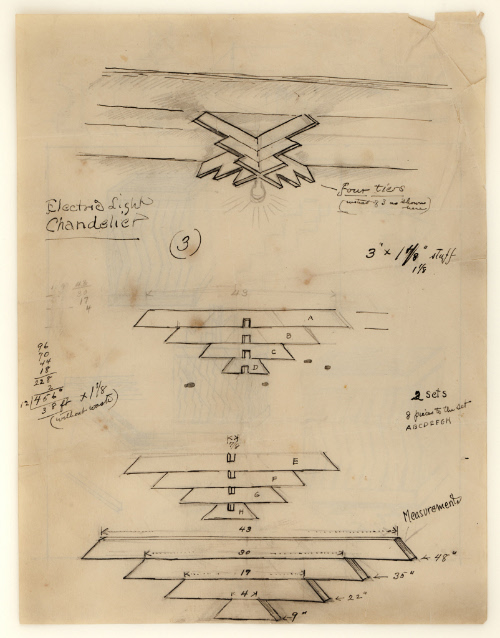 four tiers
(instead of 3 as shown
here)
Electric Light
Chandelier
3
3" x 1 1/8" stuff
1 1/8
43
17
4
43
A
B
C
D
96
70
44
18
228
2
12)456
38 ft x 1 1/8
(without waste)
2 sets
8 pieces to the set
ABCDEFGH
E
F
G
H
Measurements
43
30
17
4
48"
35"
22"
9"